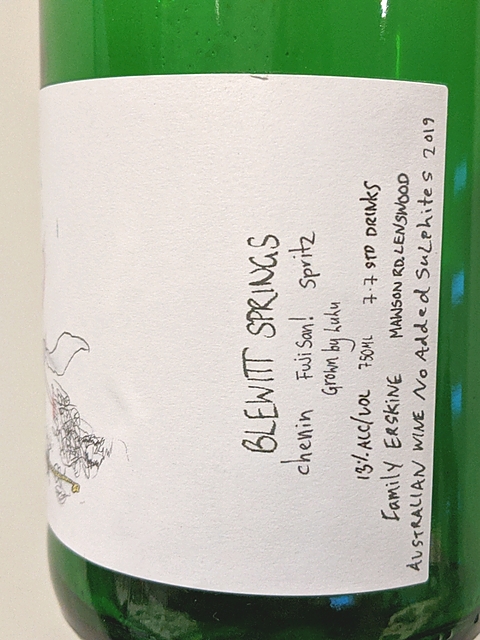 BLEWITT SPRINGS
chenin Fuji San! Spritz
Grown by Lulu
13% ALC/VOL 750ML 7.7 STD DRINKS
Family ERSKINE MAWSON RD. LENSWOOD
AUSTRALIAN WINE No Added Sulphites 2019